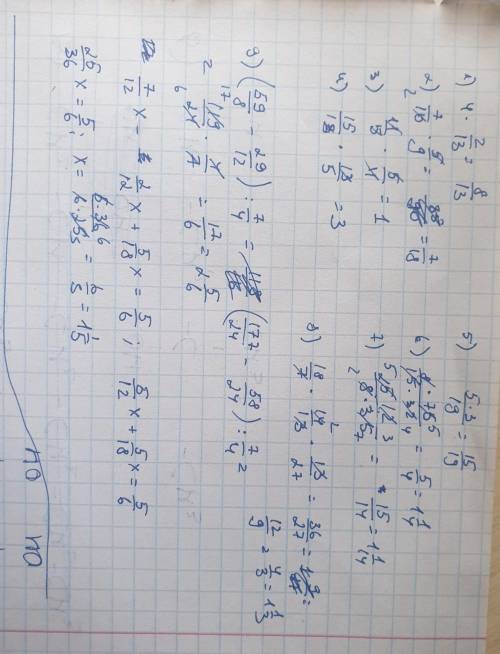 1) 4 · 2/13 = 8/13
2) 7/10 · 5/9 = = 7/18
3) 11/5 · 5/11 = 1
4) 15/13 · 13/5 = 3
5) 5·3/19 = 15/19
6) = 5/4 = 1 1/4
7) = 15/14 = 1 1/14
8) 18/7 · 14/13 · 13/27 = 36/27 =
12/9 = 4/3 = 1 1/3
9) (59/8 - 29/12) : 7/4 = (177/24 - 58/24) : 7/4 =
119/24 · 4/7 = 17/6 = 2 5/6
7/12 x - 2/12 x + 5/18 x = 5/6 ; 5/12 x + 5/18 x = 5/6
25/36 x = 5/6 ; x = 5·36/6·25 = 6/5 = 1 1/5